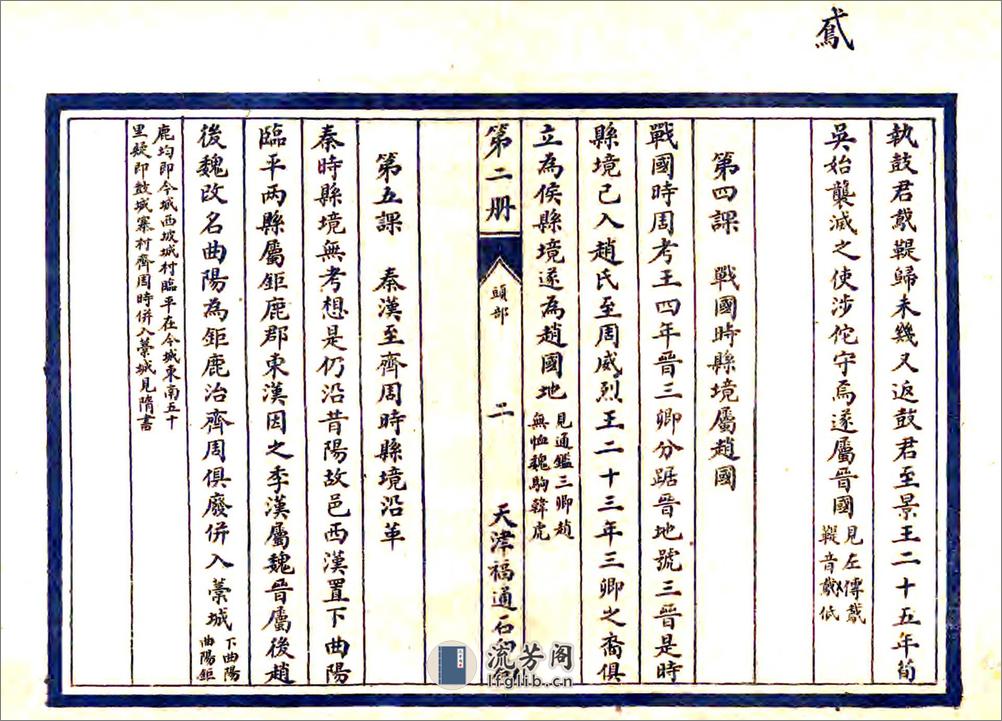 貳
執鼓君鳶鞮歸未幾又返鼓君至景王二十五年荀
吳始襲滅之使涉佗守焉遂屬晉國
見左傳鳶
鞮音鳶低
第四課　戰國時縣境屬趙國
戰國時周考王四年晉三卿分踞晉地號三晉是時
縣境已入趙氏至周威烈王二十三年三卿之裔俱
立為侯縣境遂為趙國地
見通鑑三卿趙
無恤魏駒韓虎
第二册
頭部
二
天津福通石印
第五課　秦漢至齊周時縣境沿革
秦時縣境無考想是仍沿昔陽故邑西漢置下曲陽
臨平兩縣屬鉅鹿郡東漢因之季漢屬魏晉屬後趙
後魏改名曲陽為鉅鹿治齊周俱廢併入藁城
下曲陽
曲陽鉅
鹿均即今城西坡城村臨平在今城東南五十
里疑即鼓城寨村齊周時併入藁城見隋書
流芳阁
lfglib.cn